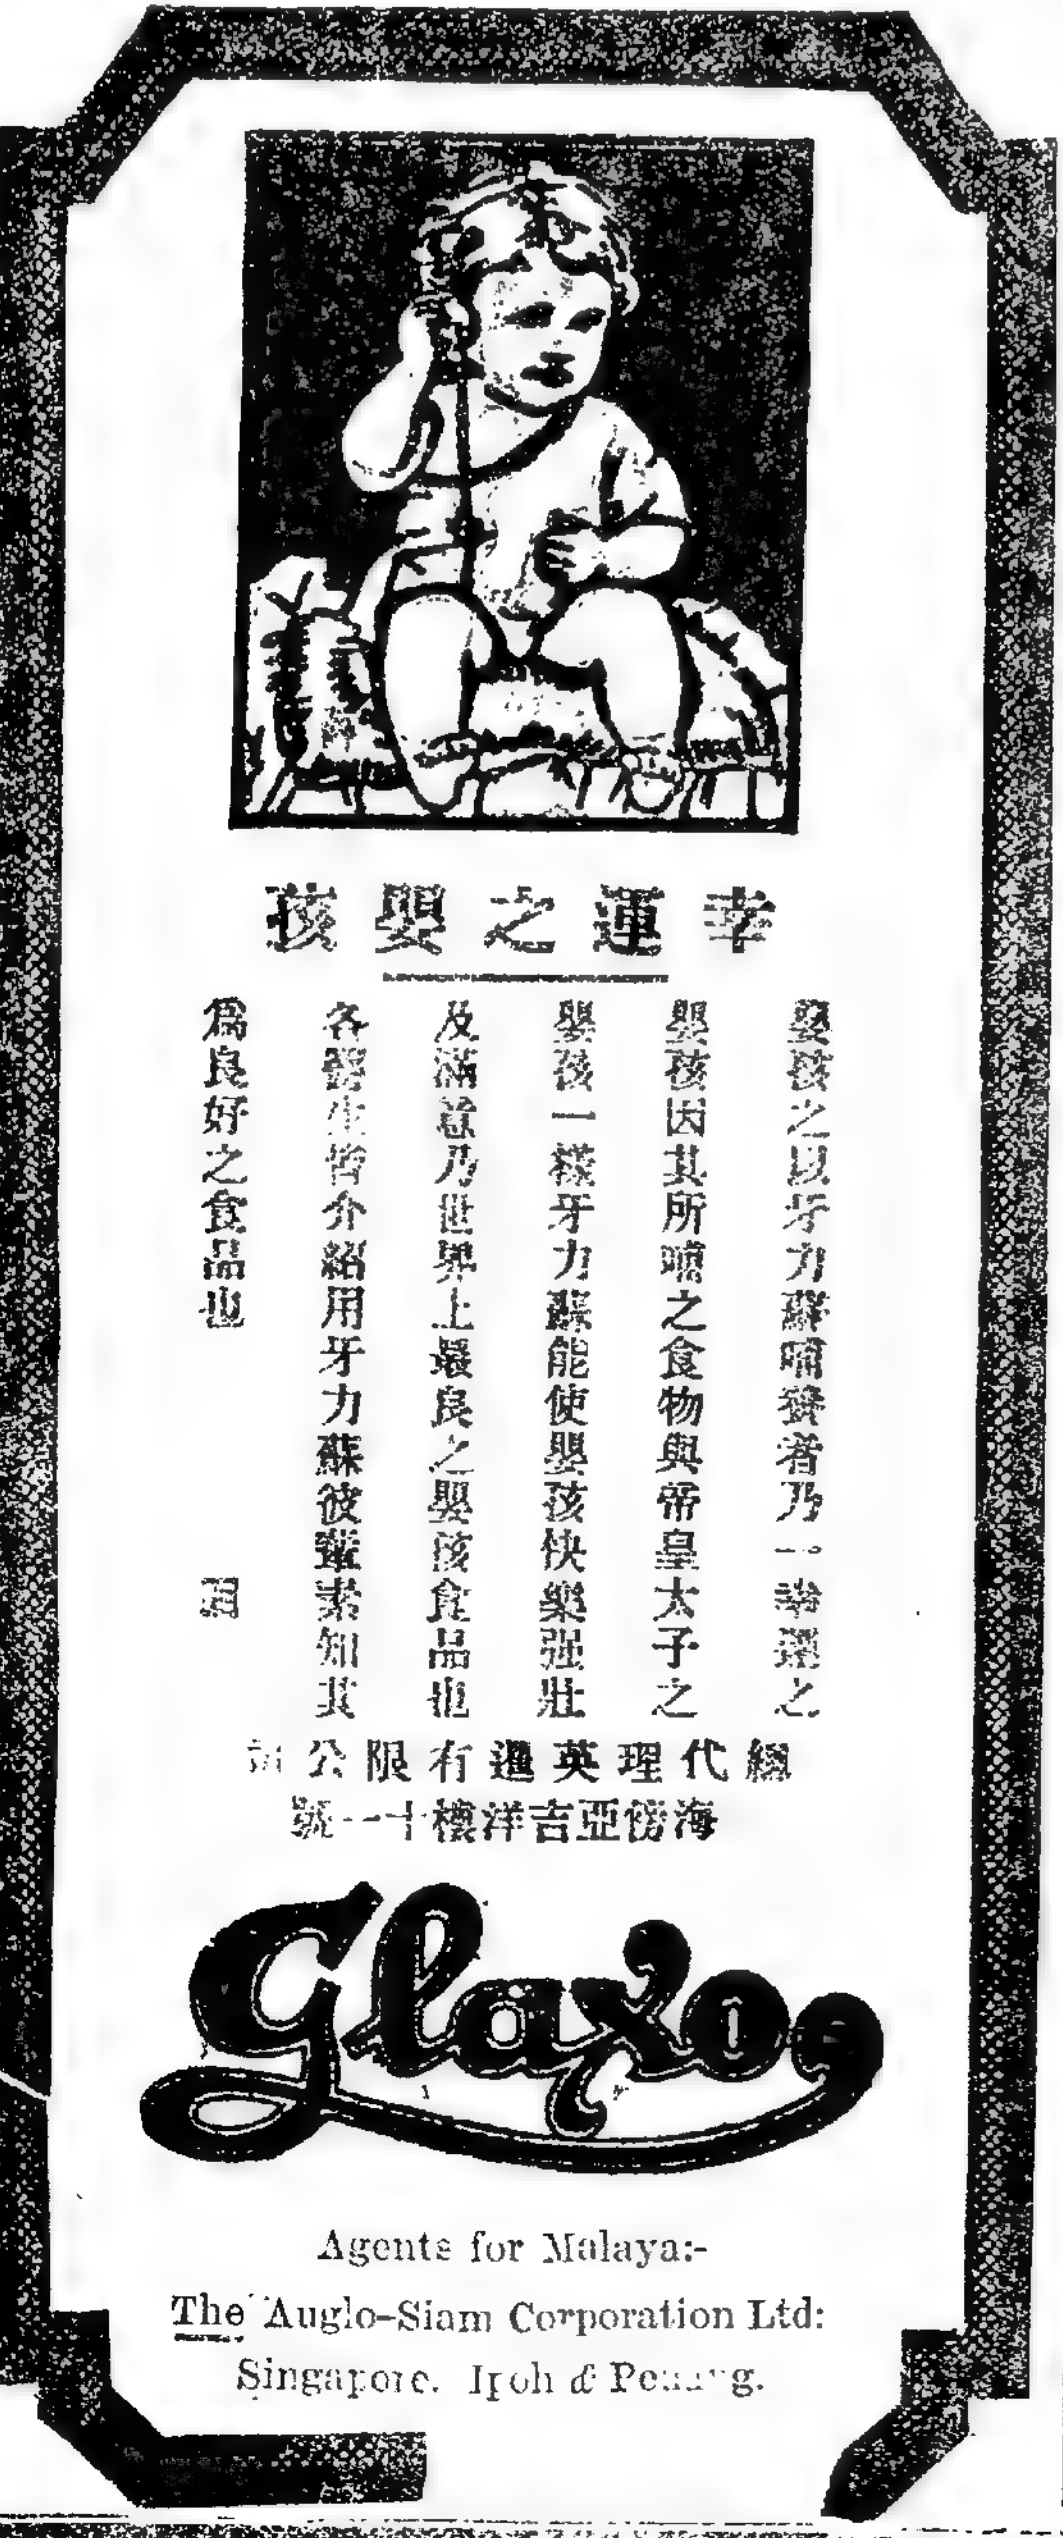 幸運之嬰孩
嬰孩之以牙力蘇哺養者乃一幸運之
嬰孩因其所哺之食物與帝皇太子之
嬰孩一樣牙力蘇能使嬰孩快樂强壯
及滿意乃世界上最良之嬰孩食品也
各醫生皆介紹用牙力蘇彼輩素知其
爲良好之食品也
總代理英暹有限公司
海傍亞吉洋樓十一號
Glaxo
Agents for Malaya:-
The Anglo-Siam Corporation Ltd:
Singapore. Ipoh & Penang.